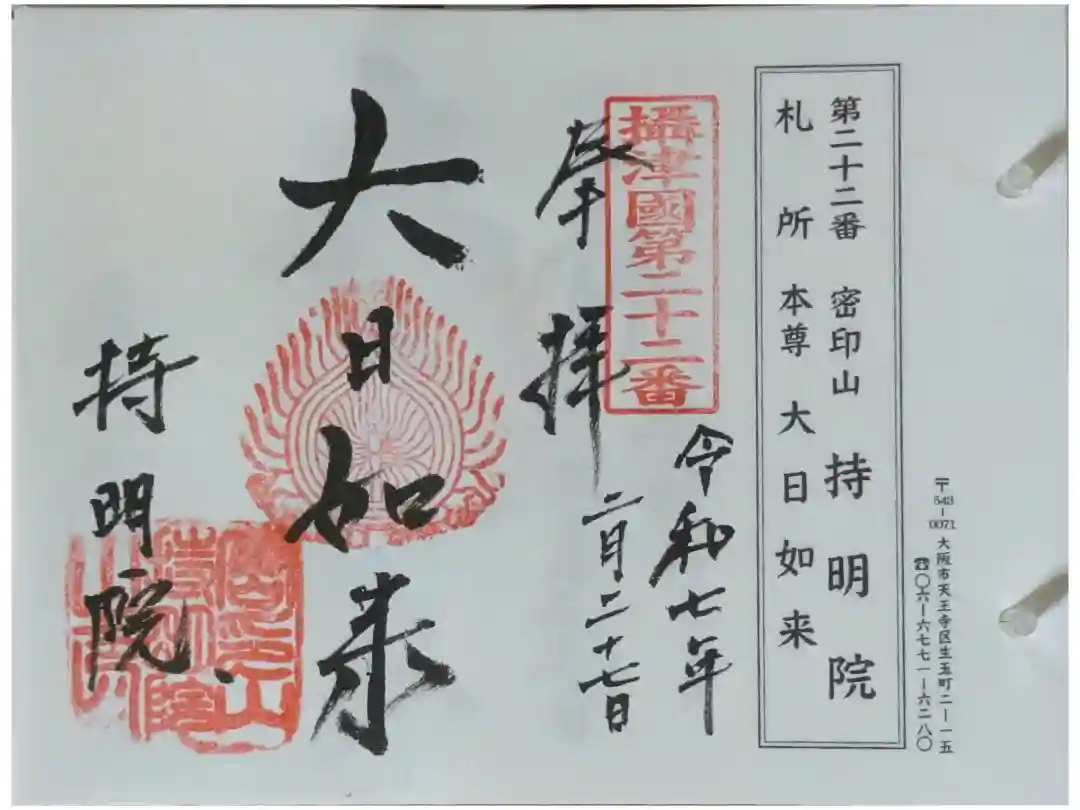 〒543-0071 大阪市天王寺区生玉町二ー一五
☎〇六ー六七七一ー六二八〇
第二十二番 密印山 持明院
札所本尊 大日如来
攝津國第二十二番
令和七年
二月二十七日
奉拝
大日如来
持明院